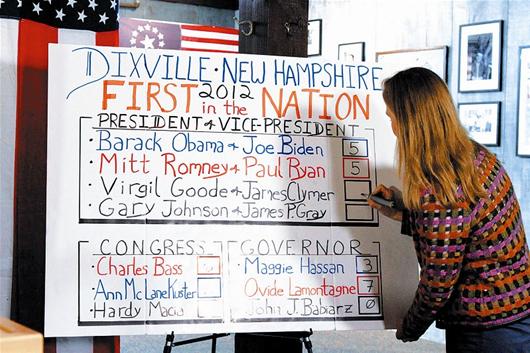 DIXVILLE · NEW HAMPSHIRE
FIRST 2012 in the NATION
PRESIDENT & VICE-PRESIDENT
· Barack Obama & Joe Biden 5
· Mitt Romney & Paul Ryan 5
· Virgil Goode & James Clymer
· Gary Johnson & James P. Gray
CONGRESS
· Charles Bass
· Ann McLane Kuster
· Hardy Macia
GOVERNOR
· Maggie Hassan 3
· Ovide Lamontagne 7
· John J. Babiarz 0